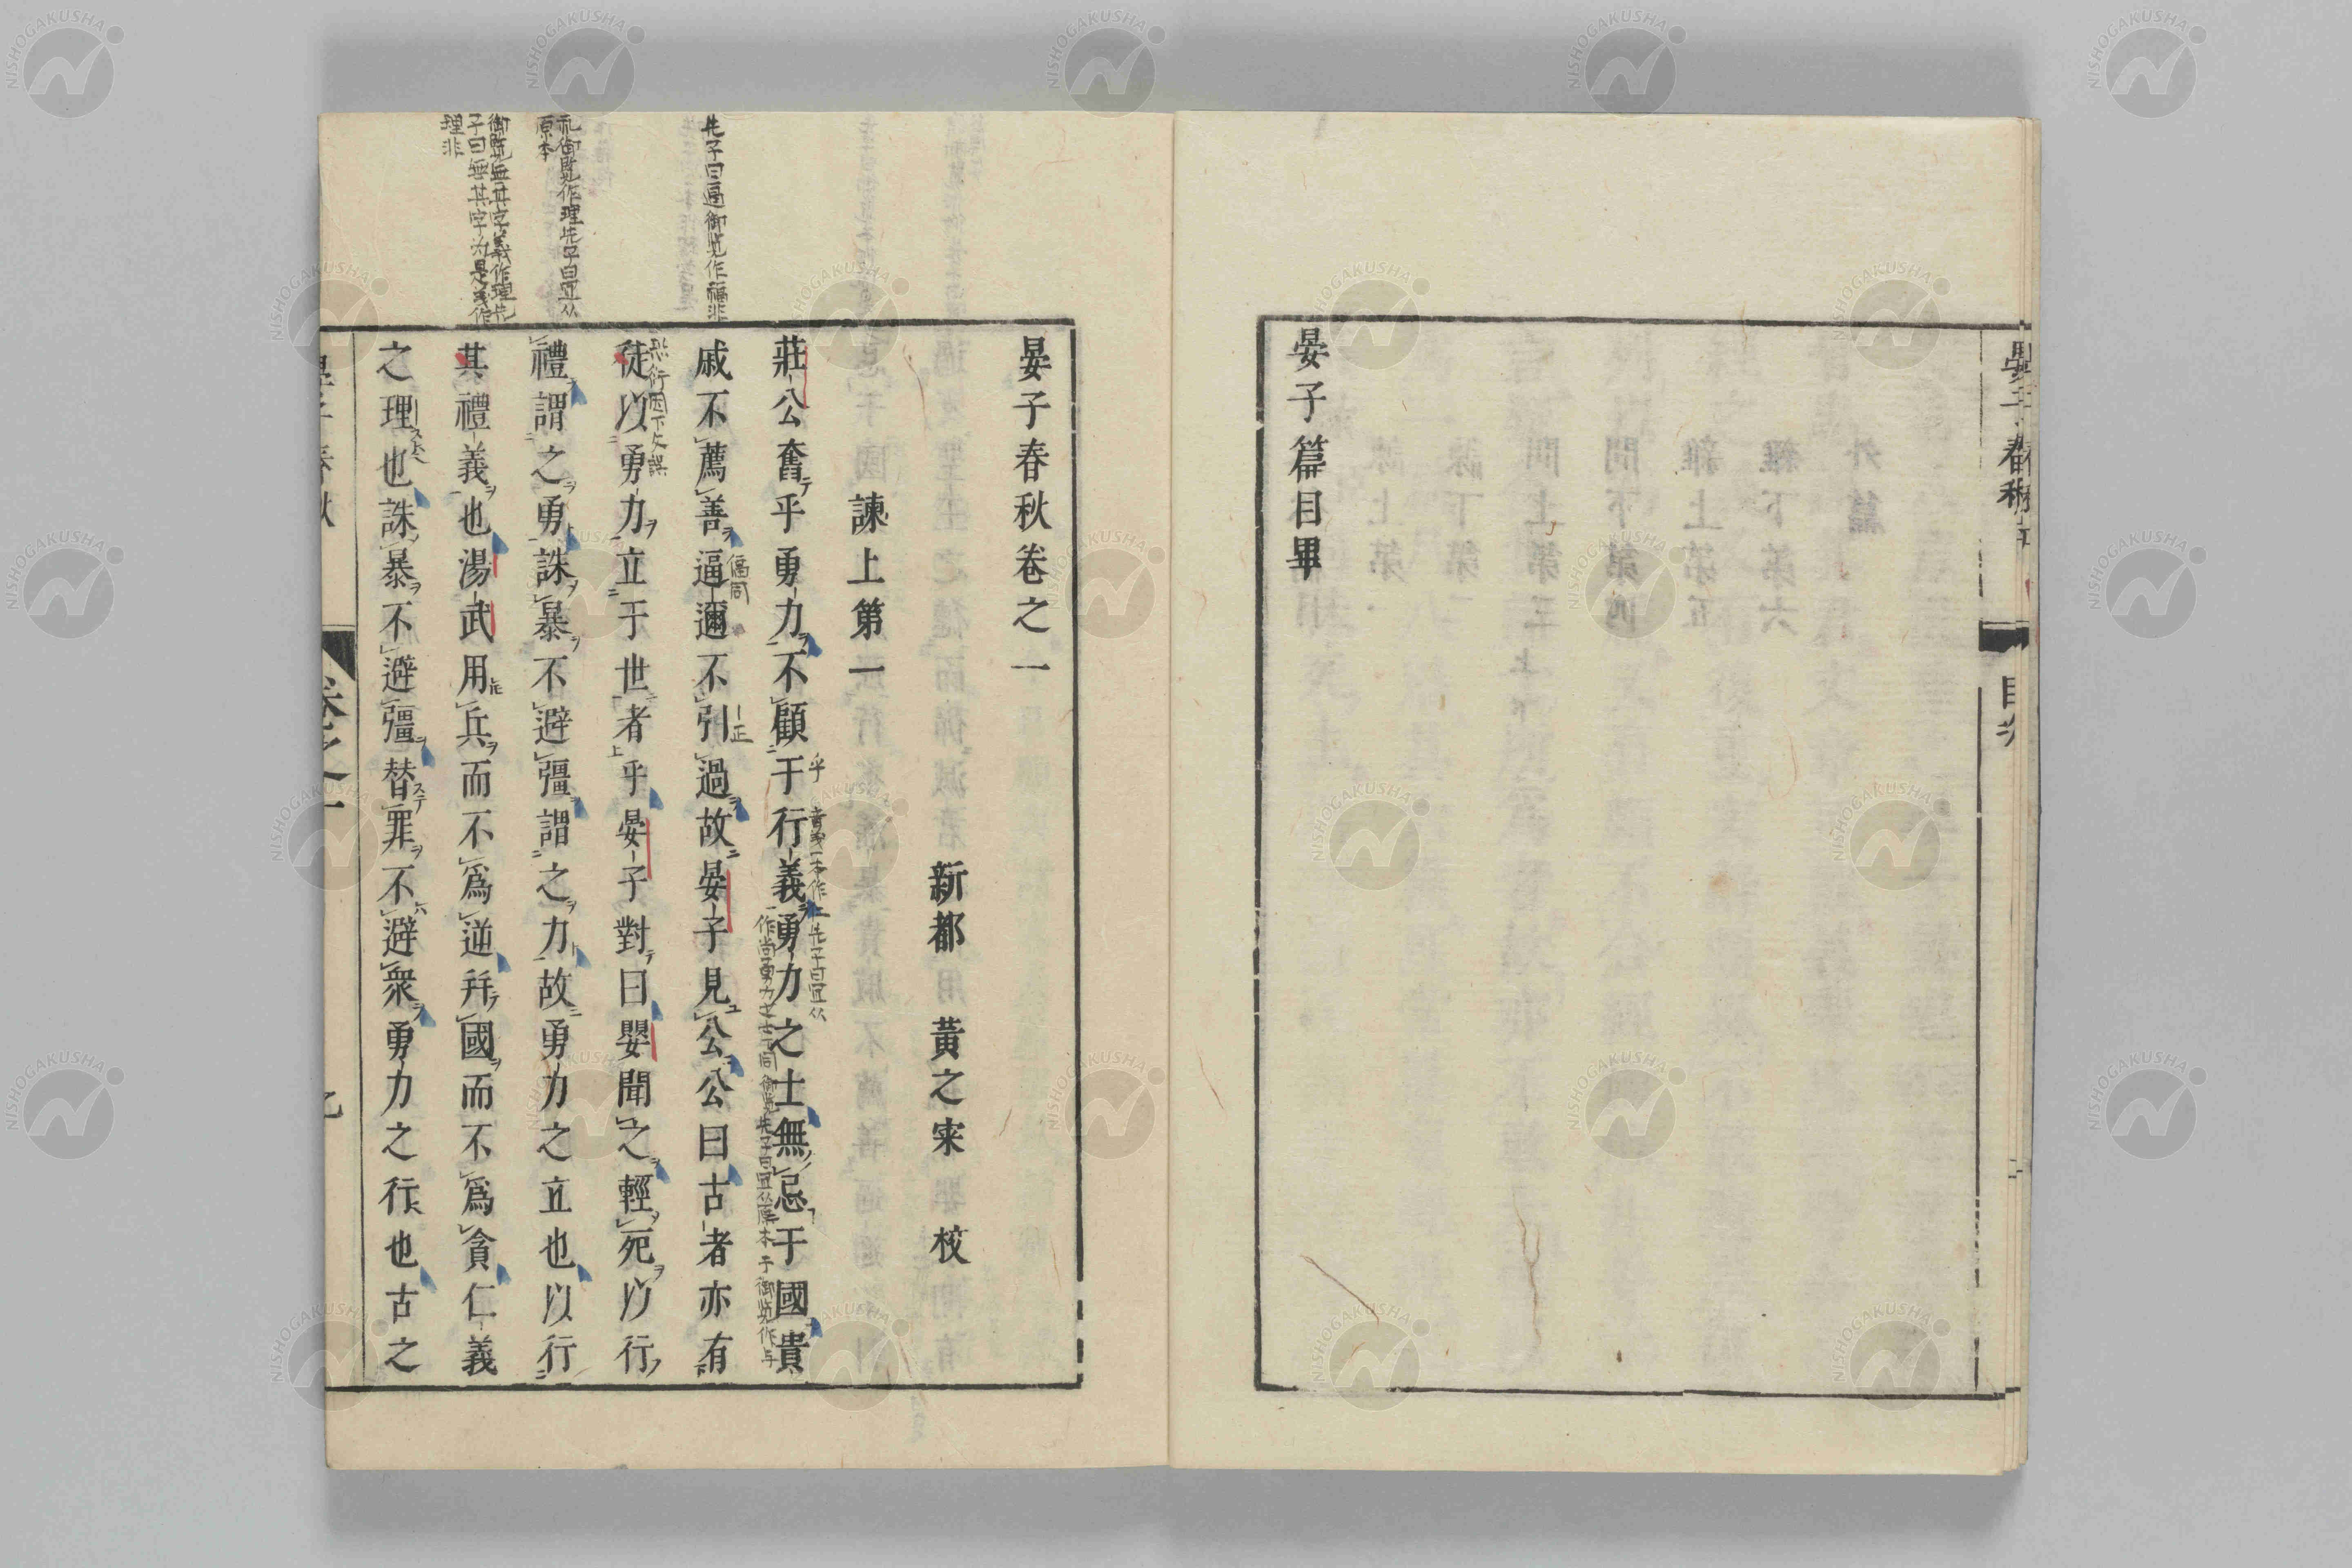 晏子篇目畢
晏子春秋卷之一
新都 黃之寀 校
諫上第一
莊公奮乎勇力不顧于行義勇力之士無忌于國貴
戚不薦善逼邇不引過故晏子見公公曰古者亦有
徒以勇力立于世者乎晏子對曰嬰聞之輕死以行
禮謂之勇誅暴不避彊謂之力故勇力之立也以行
其禮義也湯武用兵而不爲逆幷國而不爲貪仁義
之理也誅暴不避彊替罪不避衆勇力之行也古之
先子曰逼御覧作福非
礼御覧作理先子曰宜从
原本
御覧無其字義作理先
子曰無其字为是義作
理非
乎
音義一本作仁先子曰宜从
作尚勇力之士
御覧先子曰宜从原本 于御览作与
偪同
正
行因下文誤
NISHOGAKUSHA